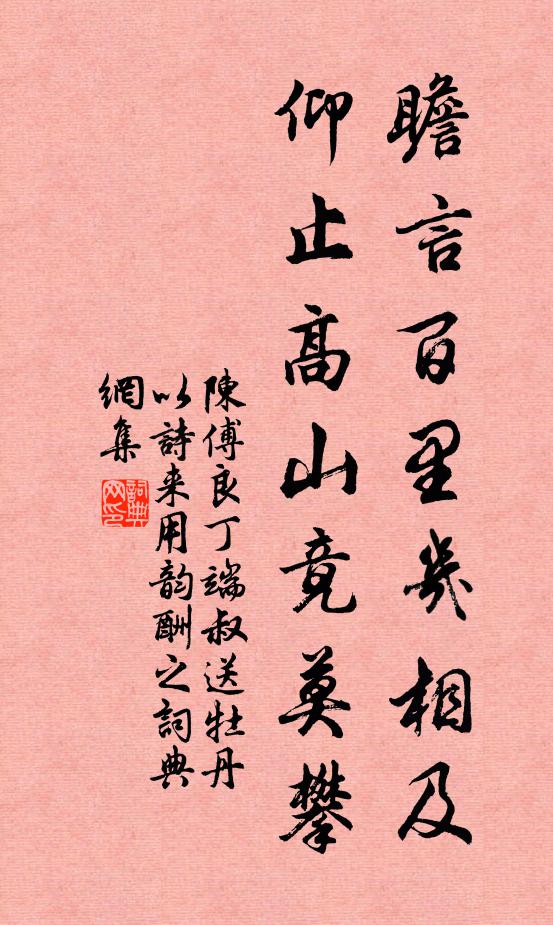 瞻言百里幾相及
仰止高山竟莫攀
陳傅良丁端叔送牡丹
以詩来用韵酬之詞典
網集
詞典
网印